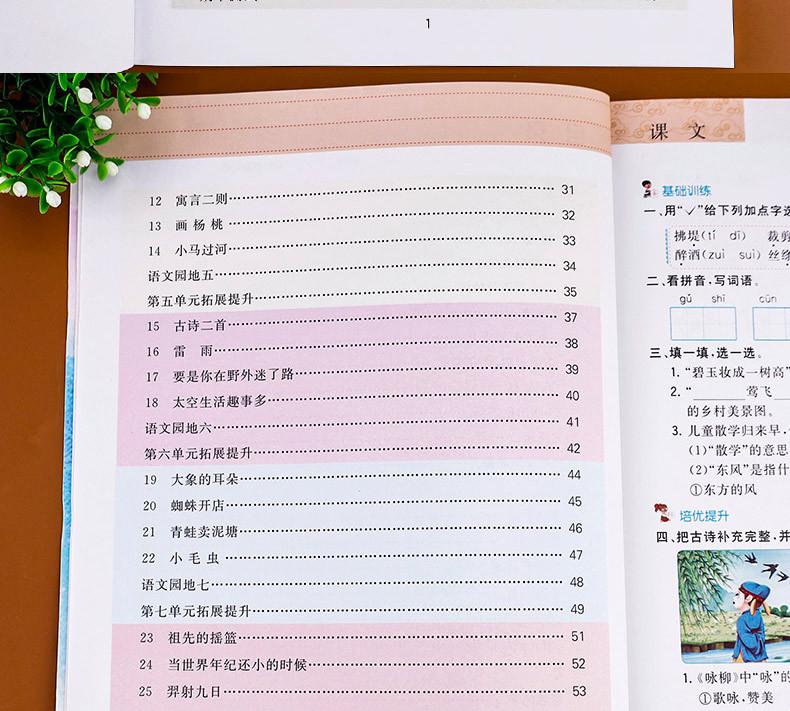 1
12 寓言二则 31
13 画杨桃 32
14 小马过河 33
语文园地五 34
第五单元拓展提升 35
15 古诗二首 37
16 雷 雨 38
17 要是你在野外迷了路 39
18 太空生活趣事多 40
语文园地六 41
第六单元拓展提升 42
19 大象的耳朵 44
20 蜘蛛开店 45
21 青蛙卖泥塘 46
22 小毛虫 47
语文园地七 48
第七单元拓展提升 49
23 祖先的摇篮 51
24 当世界年纪还小的时候 52
25 羿射九日 53
课 文
基础训练
一、用“✓”给下列加点字
拂堤(tí dī) 裁
醉酒(zuì suì) 丝
二、看拼音，写词语。
gǔ shī cūn
三、填一填，选一选。
1.“碧玉妆成一树高”
2.“________莺飞
的乡村美景图。
3. 儿童散学归来早，
(1)“散学”的意思
(2)“东风”是指什
①东方的风
培优提升
四、把古诗补充完整，并
1.《咏柳》中“咏”的
①歌咏，赞美